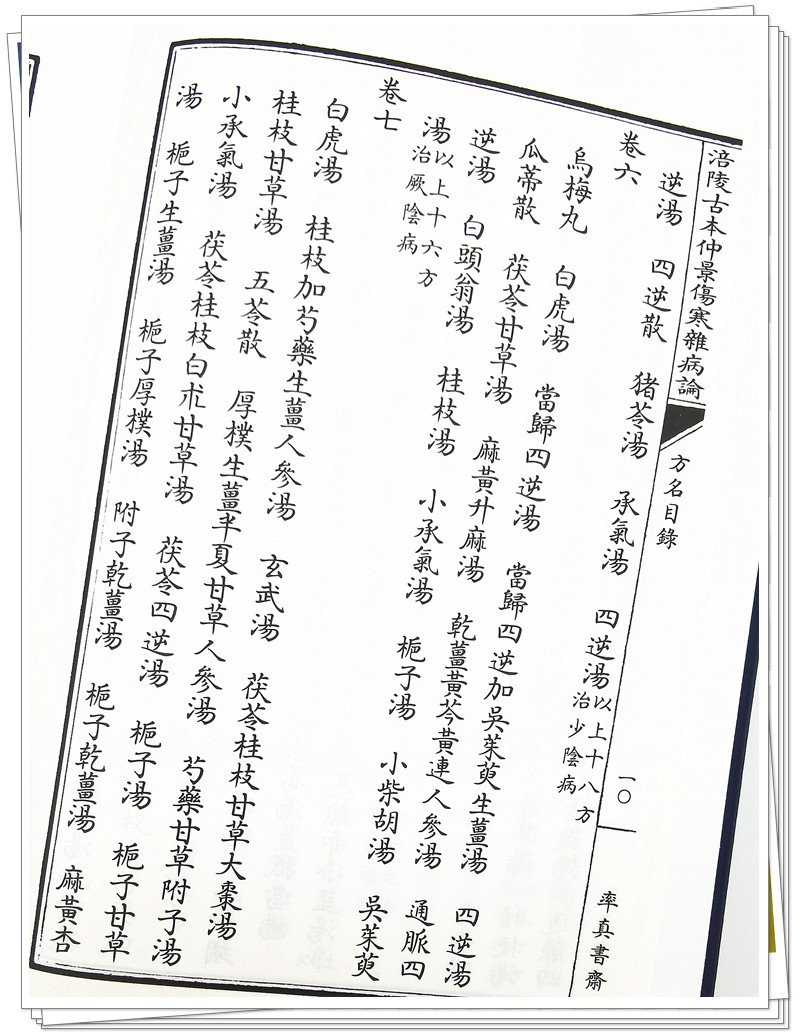 涪陵古本仲景傷寒雜病論 方名目錄 一〇 率真書齋
逆湯 四逆散 猪苓湯 承氣湯 四逆湯 以上十八方治少陰病
卷六
烏梅丸 白虎湯 當歸四逆湯 當歸四逆加吳茱萸生薑湯 四逆湯
瓜蒂散 茯苓甘草湯 麻黃升麻湯 乾薑黃芩黃連人參湯 通脈四
逆湯 白頭翁湯 桂枝湯 小承氣湯 梔子湯 小柴胡湯 吳茱萸
湯 以上十六方治厥陰病
卷七
白虎湯 桂枝加芍藥生薑人參湯 玄武湯 茯苓桂枝甘草大棗湯
桂枝甘草湯 五苓散 厚樸生薑半夏甘草人參湯 芍藥甘草附子湯
小承氣湯 茯苓桂枝白朮甘草湯 茯苓四逆湯 梔子湯 梔子甘草
湯 梔子生薑湯 梔子厚樸湯 附子乾薑湯 梔子乾薑湯 麻黃杏